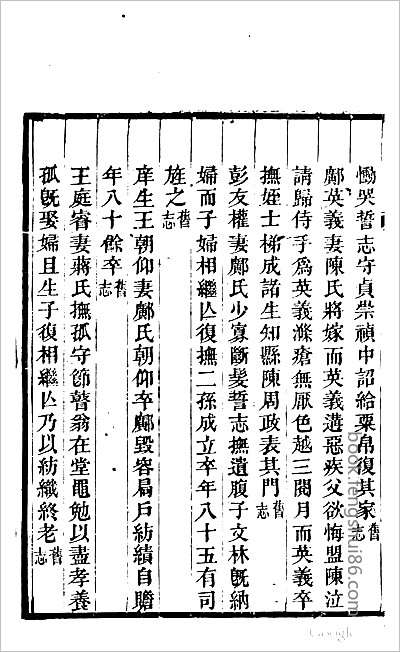 慟哭誓志守貞崇禎中詔給粟帛復其家舊志
鄺英義妻陳氏將嫁而英義遘惡疾父欲悔盟陳泣
請歸侍乎爲英義滌瘡無厭色越三閱月而英義卒
撫姪士梯成諾生知縣陳周政表其門舊志
彭友權妻鄺氏少寡斷髮誓志撫遺腹子文林旣納
婦而子婦相繼亾復撫二孫成立卒年八十五有司
旌之舊志
庠生王朝仰妻鄺氏朝仰卒鄺毀容扃戶紡績自贍
年八十餘卒舊志
王庭睿妻蔣氏撫孤守節瞽翁在堂黽勉以盡孝養
孤旣娶婦且生子復相繼亾乃以紡織終老舊志
book.fengshui86.com